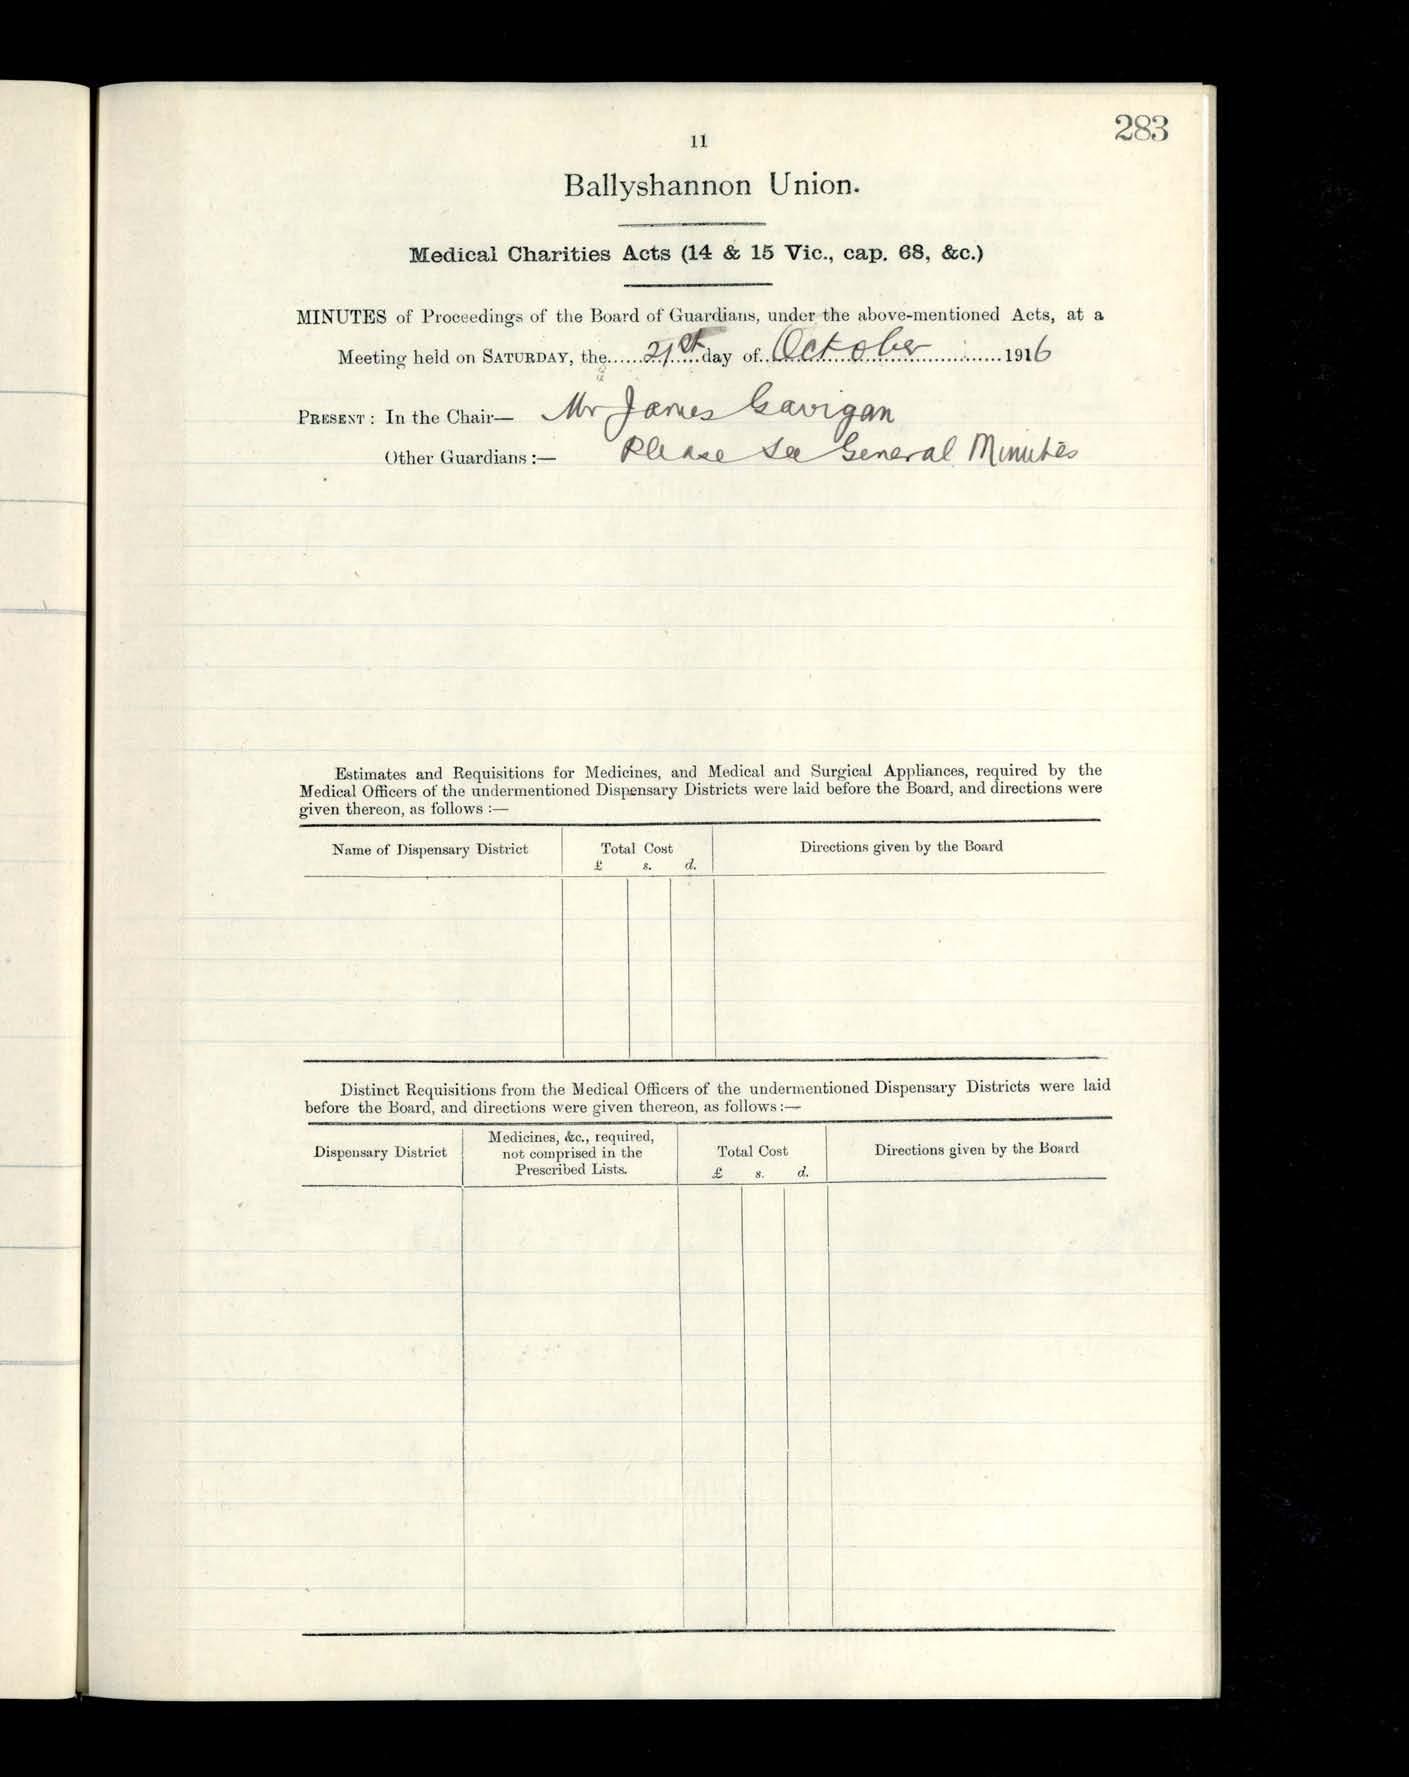 283
11
Ballyshannon Union.
Medical Charities Acts (14 & 15 Vic., cap. 68, &c.)
MINUTES of Proceedings of the Board of Guardians, under the above-mentioned Acts, at a
Meeting held on SATURDAY, the......21st.....day of..October...............1916
PRESENT: In the Chair— Mr James Gavigan
Other Guardians:— Please See General Minutes
Estimates and Requisitions for Medicines, and Medical and Surgical Appliances, required by the
Medical Officers of the undermentioned Dispensary Districts were laid before the Board, and directions were
given thereon, as follows:—
Name of Dispensary District Total Cost Directions given by the Board
£ s. d.
Distinct Requisitions from the Medical Officers of the undermentioned Dispensary Districts were laid
before the Board, and directions were given thereon, as follows:—
Dispensary District
Medicines, &c., required,
not comprised in the
Prescribed Lists.
Total Cost
£ s. d.
Directions given by the Board